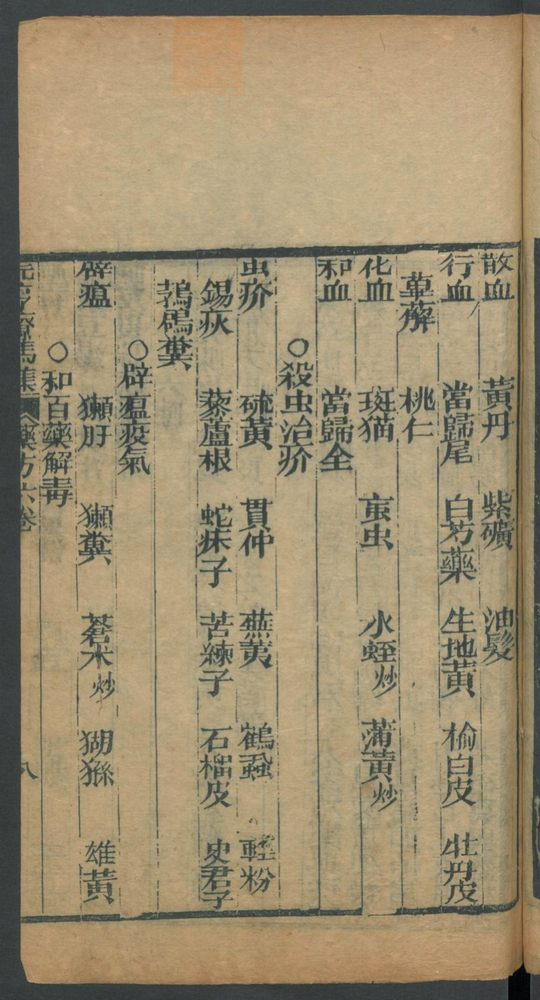 散血　黃丹　紫礦　油髮
行血　當歸尾　白芍藥　生地黃　榆白皮　牡丹皮
萆薢　桃仁
化血　斑猫　䖟虫　水蛭炒　蒲黃炒
和血　當歸全
○殺虫治疥
虫疥　硫黃　貫仲　蕪荑　鶴虱　輕粉
錫灰　藜蘆根　蛇床子　苦練子　石榴皮　史君子
鵓鴿糞
○辟瘟疫氣
辟瘟　獺肝　獺糞　蒼术炒　猢猻　雄黃
○和百藥解毒
療馬集　藥方六卷　八